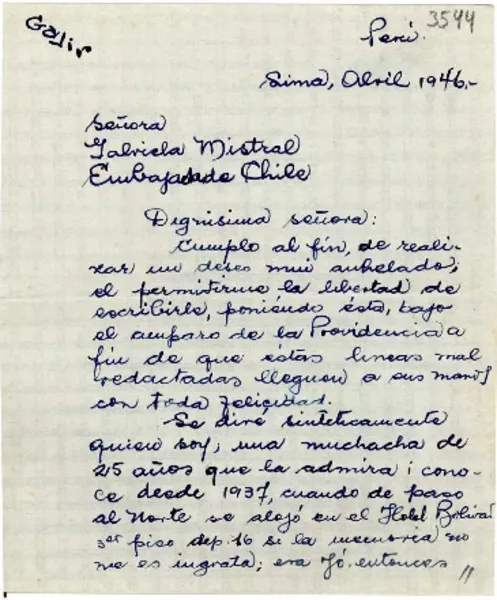 3544
Perú.
Lima, Abril, 1946.-
Señora
Gabriela Mistral
Embajada de Chile
Dignísima señora:
Cumplo al fín, de reali-
zar un deseo mui anhelado;
el permitirme la libertad de
escribirle, poniendo ésta, bajo
el amparo de la Providencia a
fin de que estas lineas mal
redactadas lleguen a sus manos
con toda felicidad.
Le diré sintéticamente
quien soy; una muchacha de
25 años que la admira i cono-
ce desde 1937, cuando de paso
al Norte se alojó en el Hotel Bolívar
3er piso dep. 16 si la memoria no
me es ingrata; era yó. entonces //